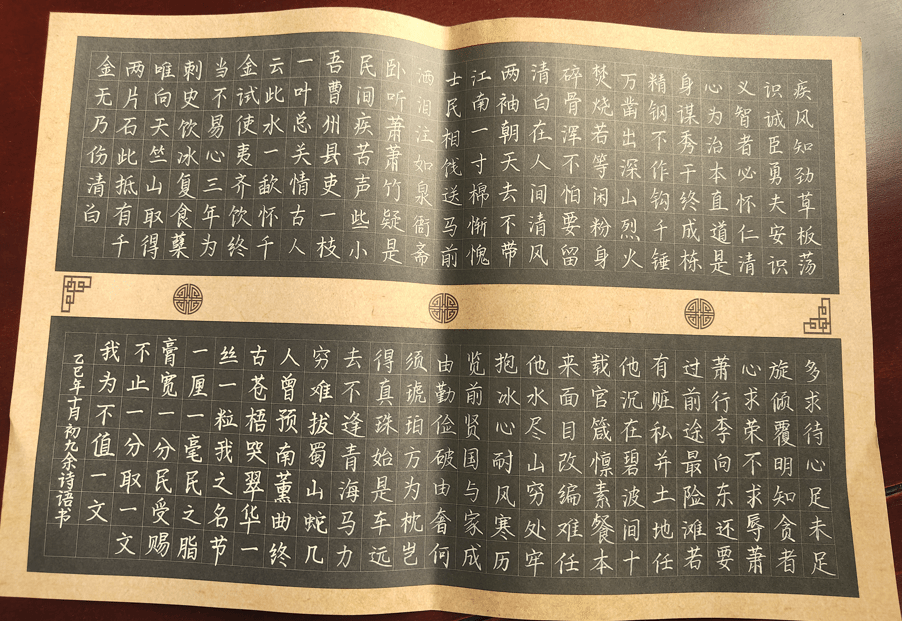 疾风知劲草板荡
识诚臣勇夫安识
义智者必怀仁清
心为治本直道是
身谋秀干终成栋
精钢不作钩千锤
万凿出深山烈火
焚烧若等闲粉身
碎骨浑不怕要留
清白在人间清风
两袖朝天去不带
江南一寸棉惭愧
士民相饯送马前
洒泪注如泉衙斋
卧听萧萧竹疑是
民间疾苦声些小
吾曹州县吏一枝
一叶总关情古人
云此水一歃怀千
金试使夷齐饮终
当不易心三年为
刺史饮冰复食蘖
唯向天竺山取得
两片石此抵有千
金无乃伤清白
多求待心足未足
旋倾覆明知贪者
心求荣不求辱萧
萧行李向东还要
过前途最险滩若
有赃私并土地任
他沉在碧波间十
载官箴懔素餐本
来面目改编难任
他水尽山穷处牢
抱冰心耐风寒历
览前贤国与家成
由勤俭破由奢何
须琥珀方为枕岂
得真珠始是车远
去不逢青海马力
穷难拔蜀山蛇几
人曾预南薰曲终
古苍梧哭翠华一
丝一粒我之名节
一厘一毫民之脂
膏宽一分民受赐
不止一分取一文
我为不值一文
乙巳年十月初九余诗语书